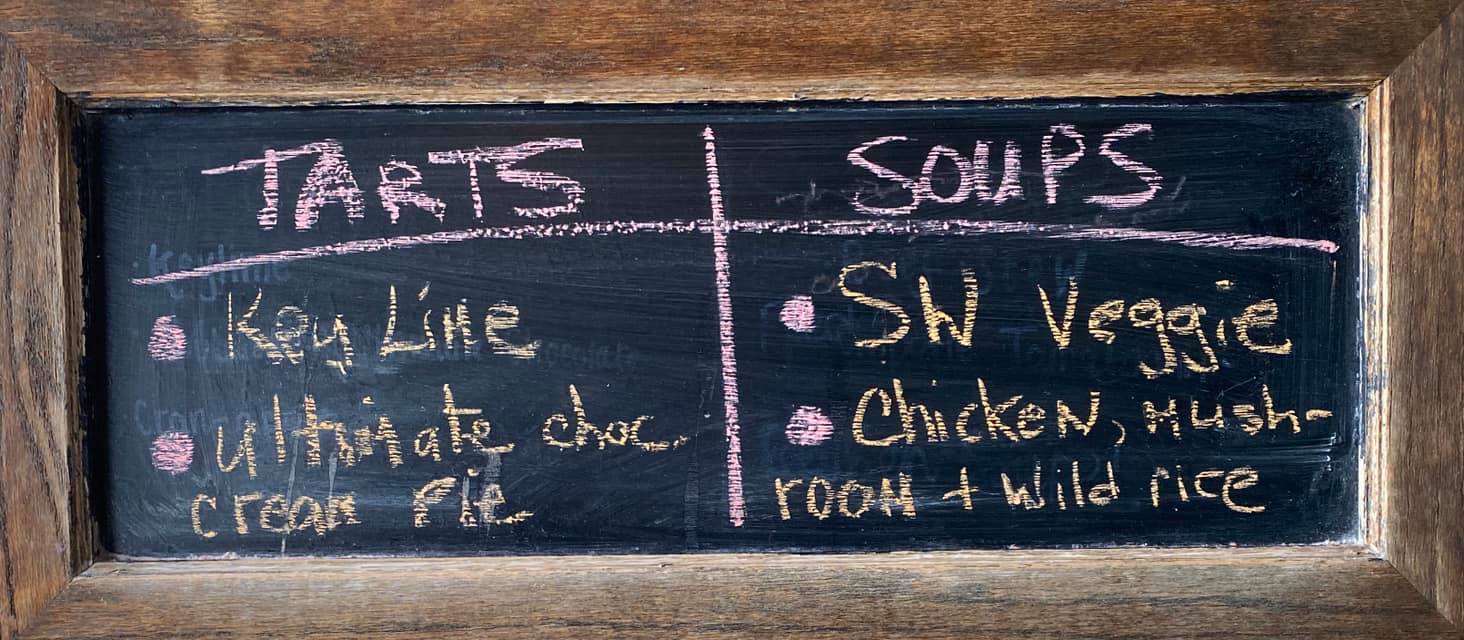 TARTS
• Key Lime
• ultimate choc.
cream Pie
SOUPS
• SW Veggie
• Chicken, Mush-
room + Wild rice